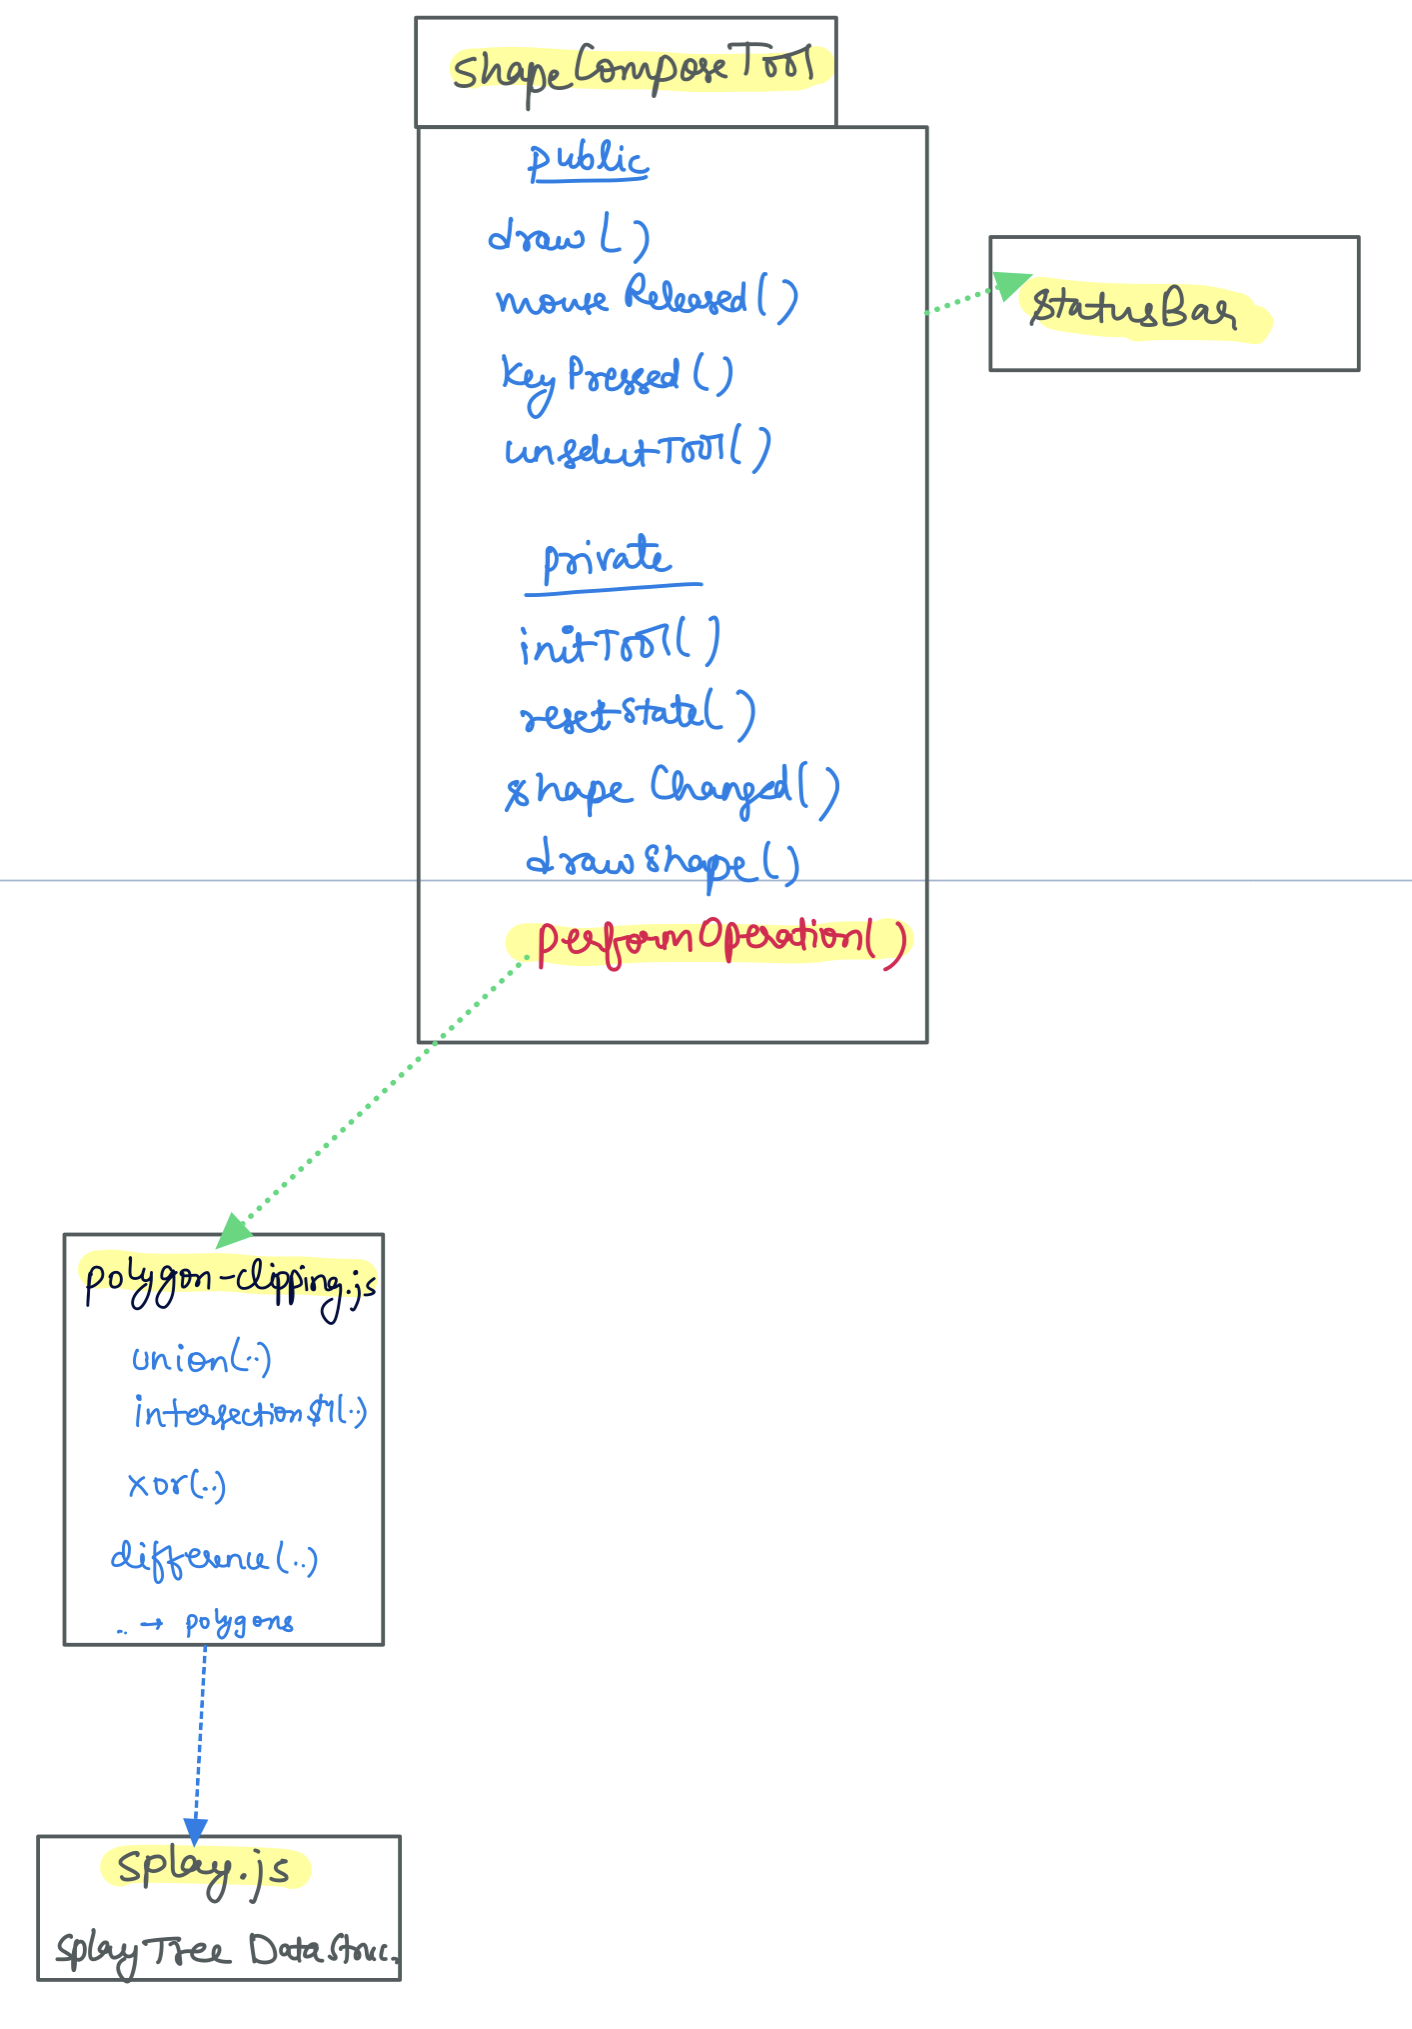 shapeComposeTool
public
draw()
mouseReleased()
keyPressed()
unselectTool()
StatusBar
private
initTool()
resetState()
shapeChanged()
drawShape()
performOperation()
polygon-clipping.js
union(..)
intersection$1(..)
xor(..)
difference(..)
.. → polygons
splay.js
splayTree DataStruc.